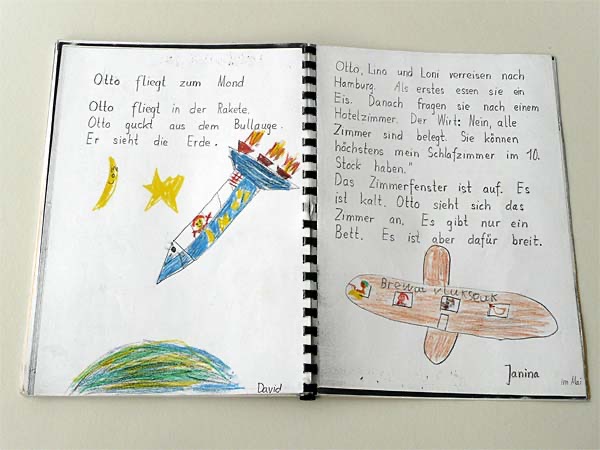 Otto fliegt zum Mond
Otto fliegt in der Rakete.
Otto guckt aus dem Bullauge.
Er sieht die Erde.
David
Otto, Lino und Loni verreisen nach
Hamburg. Als erstes essen sie ein
Eis. Danach fragen sie nach einem
Hotelzimmer. Der Wirt: Nein, alle
Zimmer sind belegt. Sie können
höchstens mein Schlafzimmer im 10.
Stock haben."
Das Zimmerfenster ist auf. Es
ist kalt. Otto sieht sich das
Zimmer an. Es gibt nur ein
Bett. Es ist aber dafür breit.
Janina
im Mai